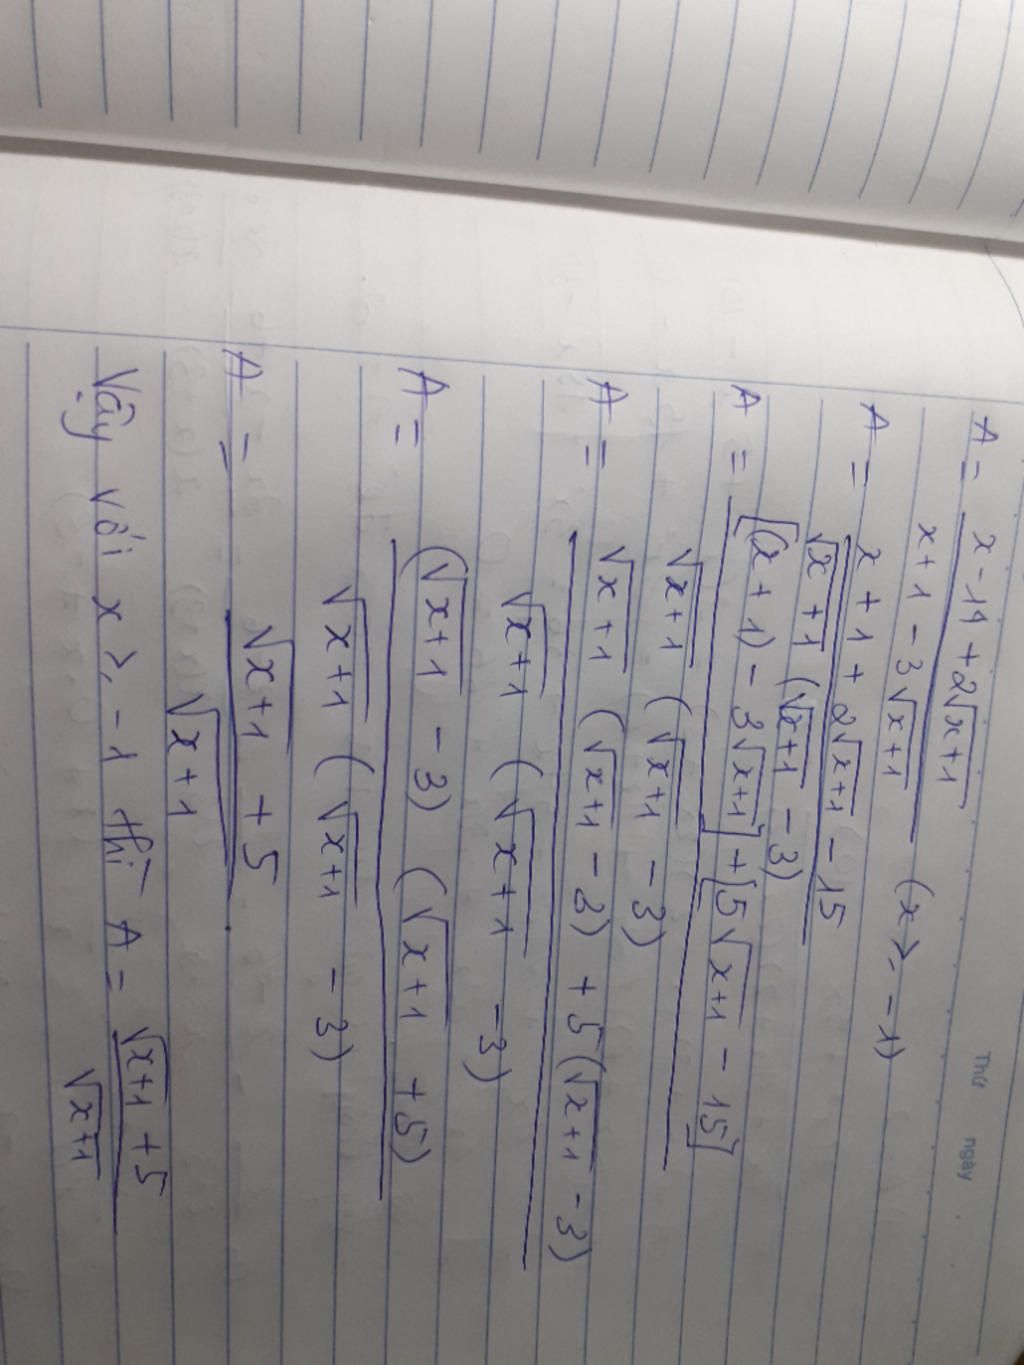 Thứ ngày
A = x - 14 + 2√x+1
x + 1 - 3√x+1 (x ≥ -1)
A = x + 1 + 2√x+1 - 15
√x+1 (√x+1 - 3)
A = [(x + 1) - 3√x+1] + [5√x+1 - 15]
√x+1 (√x+1 - 3)
A = √x+1 (√x+1 - 3) + 5(√x+1 - 3)
√x+1 (√x+1 - 3)
A = (√x+1 - 3) (√x+1 + 5)
√x+1 (√x+1 - 3)
A = √x+1 + 5
√x+1
Vậy với x ≥ -1 thì A = √x+1 + 5
√x+1